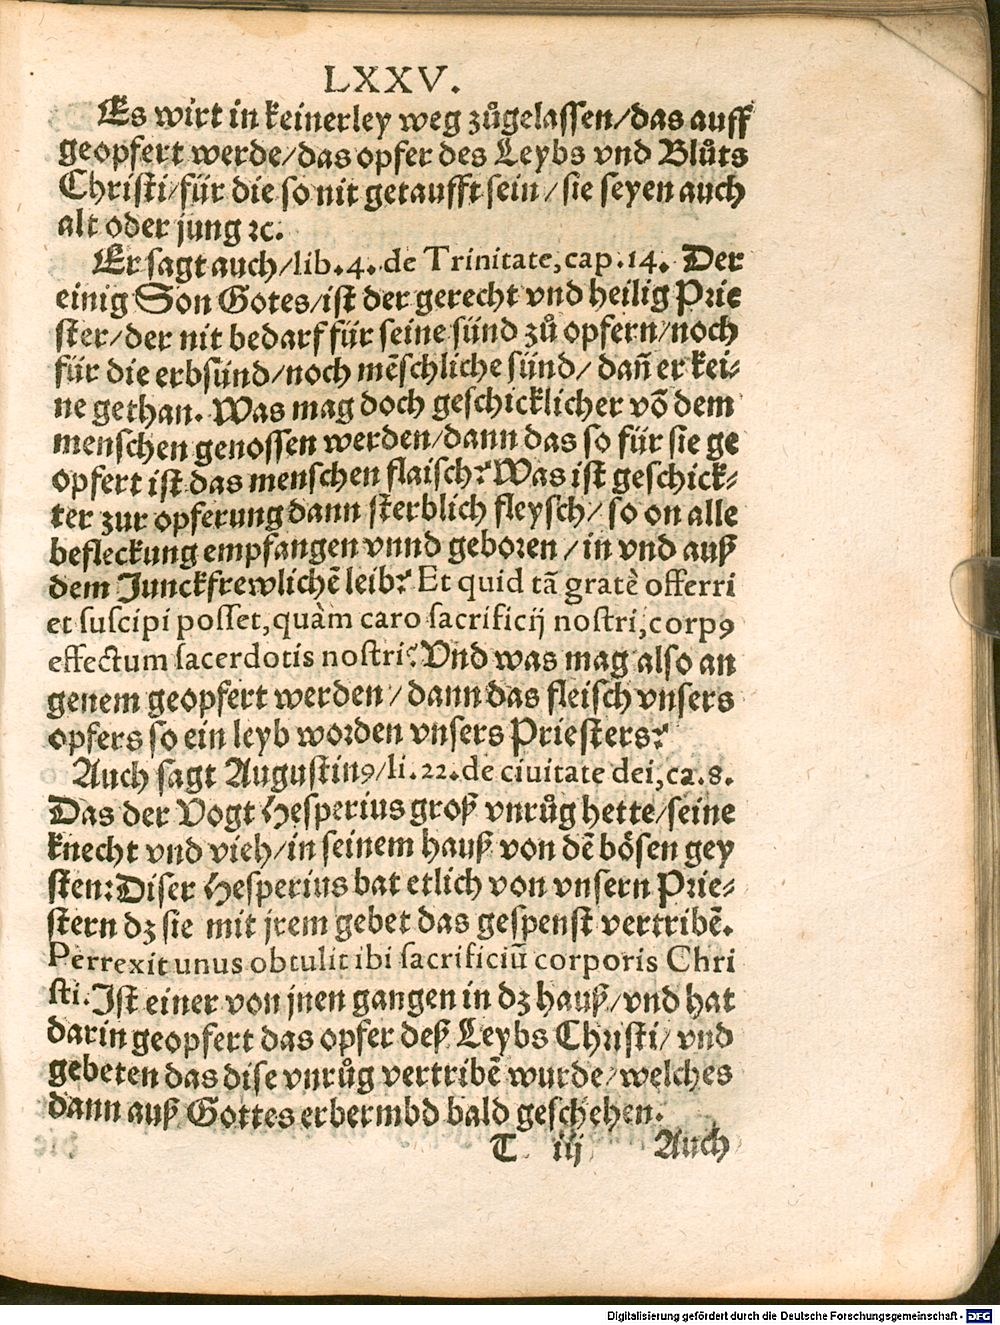 LXXV.
Es wirt in keinerley weg zůgelassen/das auff
geopfert werde/das opfer des Leybs vnd Blůts
Christi/für die so nit getaufft sein/sie seyen auch
alt oder jung ꝛc.
Er sagt auch/lib.4. de Trinitate,cap.14. Der
einig Son Gotes/ist der gerecht vnd heilig Prie
ster/der nit bedarf für seine sünd zů opfern/noch
für die erbsünd/noch mẽschliche sünd/dañ er kei⸗
ne gethan. Was mag doch geschicklicher võ dem
menschen genossen werden/dann das so für sie ge
opfert ist das menschen flaisch? Was ist geschick⸗
ter zur opferung dann sterblich fleysch/so on alle
befleckung empfangen vnnd geboren/in vnd auß
dem Junckfrewlichẽ leib? Et quid tã gratè offerri
et suscipi posset,quàm caro sacrificij nostri,corpꝰ
effectum sacerdotis nostri? Vnd was mag also an
genem geopfert werden/dann das fleisch vnsers
opfers so ein leyb worden vnsers Priesters?
Auch sagt Augustinꝰ/li.22.de ciuitate dei,ca.8.
Das der Vogt Hesperius groß vnrůg hette/seine
knecht vnd vieh/in seinem hauß von dẽ bösen gey
sten: Diser Hesperius bat etlich von vnsern Prie⸗
stern dz sie mit jrem gebet das gespenst vertribẽ.
Perrexit unus obtulit ibi sacrificiũ corporis Chri
sti. Ist einer von jnen gangen in dz hauß/vnd hat
darin geopfert das opfer deß Leybs Christi/vnd
gebeten das dise vnrůg vertribẽ wurde/welches
dann auß Gottes erbermbd bald geschehen.
T iij Auch
Digitalisierung gefördert durch die Deutsche Forschungsgemeinschaft - DFG